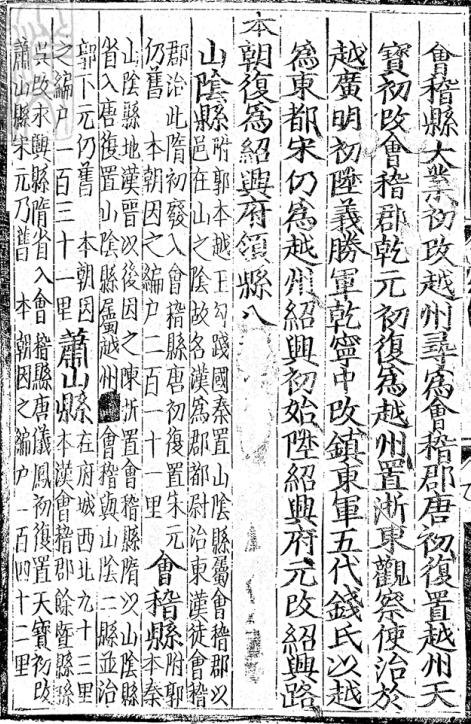 會稽縣大業初改越州尋爲會稽郡唐初復置越州天
寶初改會稽郡乾元初復爲越州置浙東觀察使治於
越廣明初陞義勝軍乾寧中改鎮東軍五代錢氏以越
爲東都宋仍爲越州紹興初始陞紹興府元改紹興路
本朝復爲紹興府領縣八
山陰縣附郭本越王勾踐國秦置山陰縣屬會稽郡以
邑在山之陰故名漢爲郡都尉治東漢徙會稽
郡治此隋初廢入會稽縣唐初復置宋元
仍舊 本朝因之編戶二百一十一里 會稽縣附郭
本秦
山陰縣地漢晉以後因之陳析置會稽縣隋以山陰縣
省入唐復置山陰縣屬越州 會稽與山陰二縣並治
郭下元仍舊 本朝因
之編戶一百三十一里 蕭山縣在府城西北九十三里
本漢會稽郡餘暨縣
吳改永興縣隋省入會稽縣唐儀鳳初復置天寶初改
蕭山縣宋元乃舊 本朝因之編戶一百四十二里